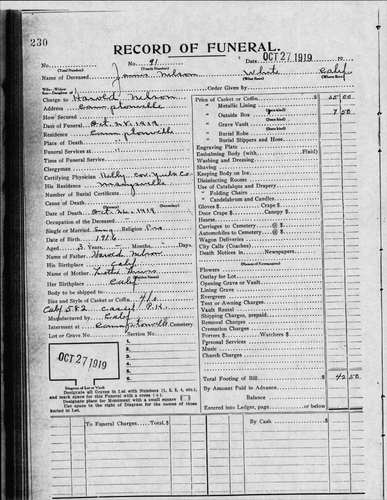 230
RECORD OF FUNERAL.
No. No. 91 Date OCT 27 1919 19
(Total Number) (Yearly Number)
Name of Deceased James Nelson White Calif
(What Race) (Where Born)
Charge to Harold Nelson Order Given by
Address Camptonville
How Secured
Date of Funeral Oct. 28, 1919
Residence Camptonville
Place of Death
Funeral Services at
Time of Funeral Service
Clergyman
Certifying Physician Kelly, Cor. Yuba Co.
His Residence Marysville
Number of Burial Certificate
Cause of Death
Date of Death Oct 26, 1919
Occupation of the Deceased
Single or Married Sing Religion
Date of Birth 1916
Aged 3 Years Months Days
Name of Father Harold Nelson
His Birthplace Calif
Name of Mother
Her Birthplace Calif
Body to be shipped to
Size and Style of Casket or Coffin 4/0
Manufactured by
Interment at Camptonville Cemetery
Lot or Grave No. Section No.
OCT 27 1919
1
2
3
4
5
6
7
8
Diagram of Lot or Vault
Designate all Graves in Lot with Numbers (1, 2, 3, 4, etc.)
and mark space for this Funeral with a cross (+).
Designate place for Monument with a small square
Use space to the right of Diagram for the names of those
buried in Lot.
Price of Casket or Coffin 35 00
" Metallic Lining
" Outside Box 7 50
" Grave Vault
" Burial Robe
" Burial Slippers and Hose
Engraving Plate
Embalming Body (with Fluid)
Washing and Dressing
Shaving
Keeping Body on Ice
Disinfecting Rooms
Use of Catafalque and Drapery
" Folding Chairs
" Candelabrum and Candles
Gloves $ Crape $
Door Crape $ Canopy $
Carriages to Cemetery @ $
Automobiles to Cemetery @ $
Wagon Deliveries
City Calls (Coaches)
Death Notices in Newspapers
(Names of Newspapers)
Flowers
Outlay for Lot
Opening Grave or Vault
Lining Grave
Evergreens
Tent or Awning Charges
Vault Rental
Shipping Charges, prepaid
Removal Charges
Cremation Charges
Porters $ Watchers $
Personal Services
Music
Church Charges
Total Footing of Bill $ 42 50
By Amount Paid in Advance
Balance
Entered into Ledger, page or below
To Funeral Charges to Account, Total, $
By Cash $